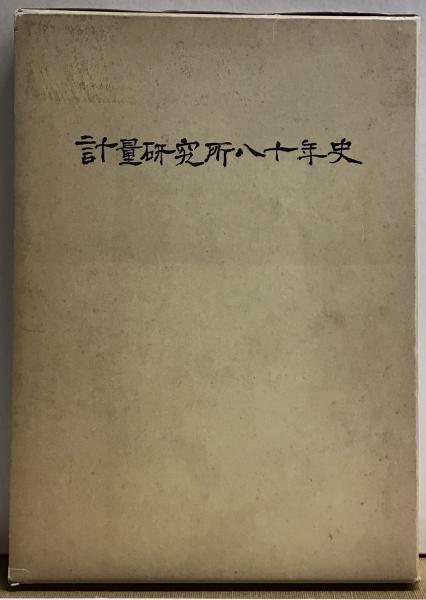 計量研究所八十年史